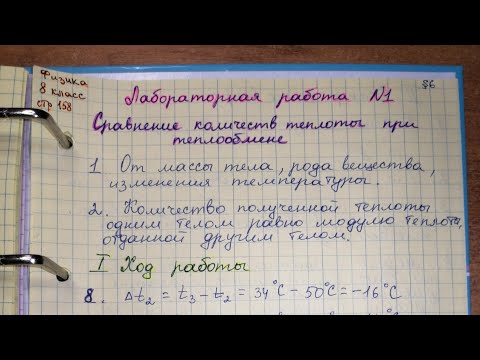 Физика
8 класс
стр 158
§6
Лабораторная работа №1
Сравнение количеств теплоты при
теплообмене
1. От массы тела, рода вещества,
изменения температуры.
2. Количество полученной теплоты
одним телом равно модулю теплоты,
отданной другим телом.
I Ход работы
8. Δt₂ = t₃ – t₂ = 34°C – 50°C = –16°C